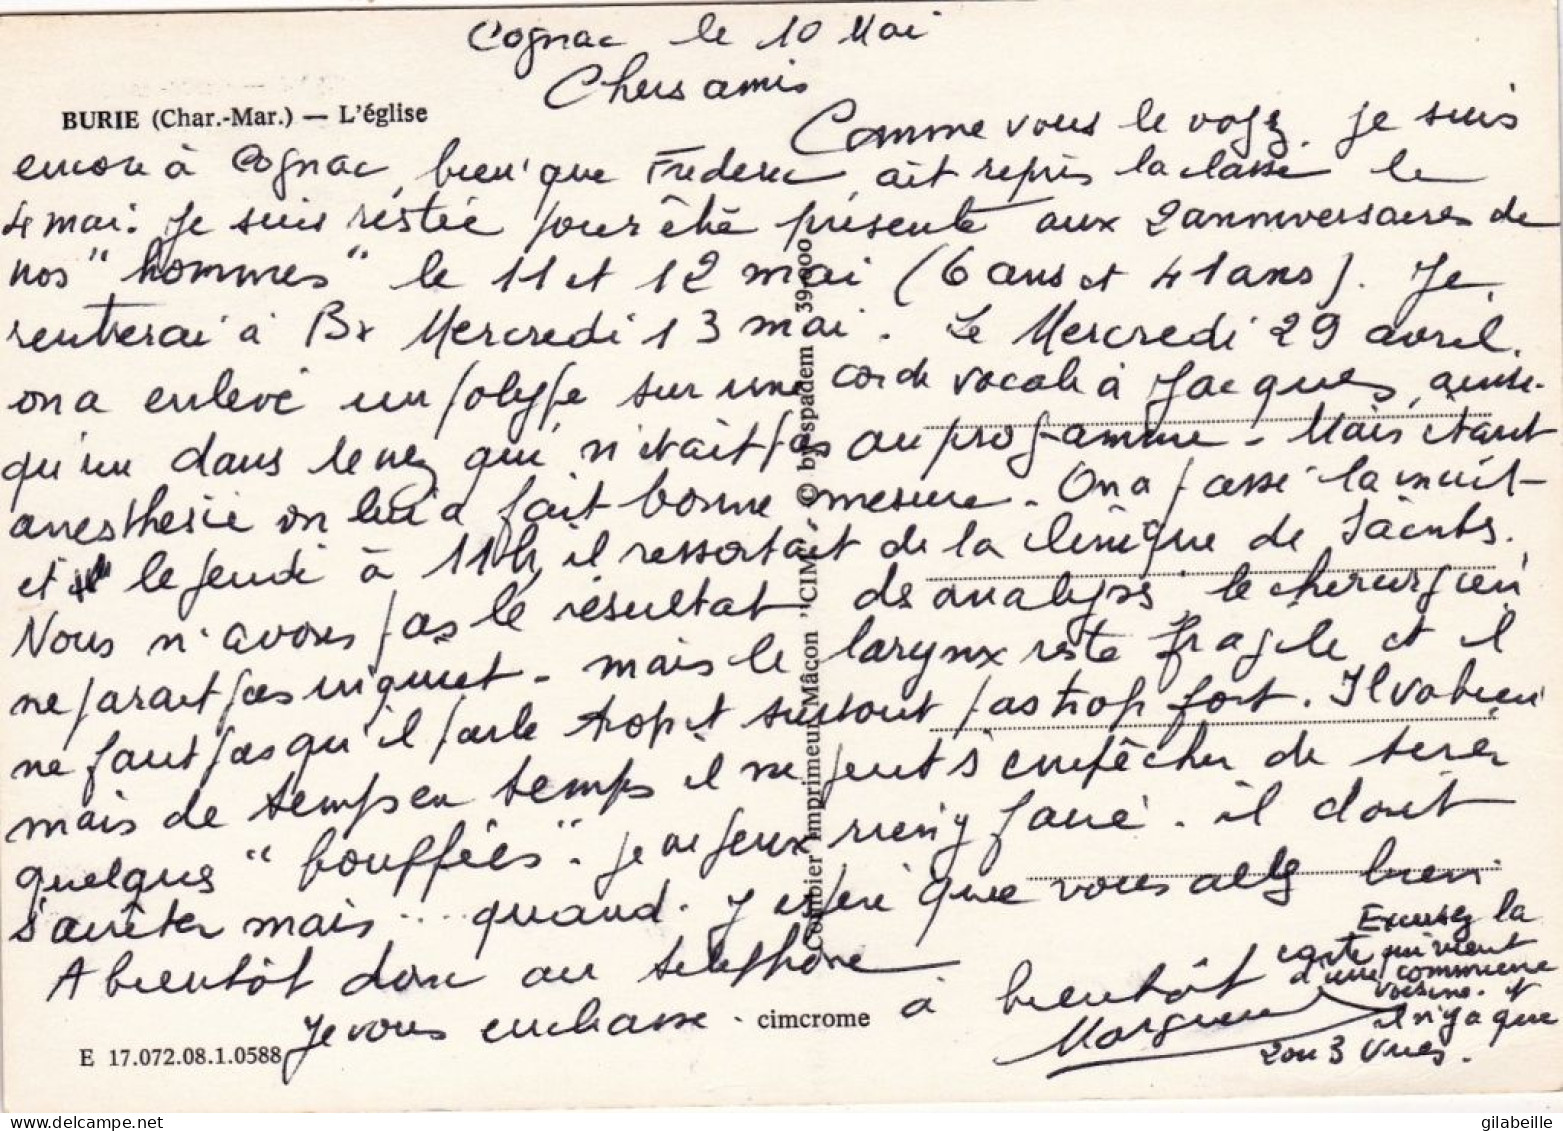 Cognac le 10 Mai
Chers amis
BURIE (Char.-Mar.) — L'église
Comme vous le voyez, je suis
encore à Cognac, bien que Frédéric ait repris la classe le
4 mai. Je suis restée pour être présente aux 2 anniversaires de
nos "hommes" le 11 et 12 mai (6 ans et 41 ans). Je
rentrerai à Bx Mercredi 13 mai. Le Mercredi 29 avril
on a enlevé un polype sur une corde vocale à Jacques, ainsi
qu'un dans le nez qui n'était pas au programme - Mais étant
anesthésié on lui a fait bonne mesure. On a passé la nuit
et le jeudi à 11h, il ressortait de la clinique de Saintes.
Nous n'avons pas le résultat des analyses, le chirurgien
ne parait pas inquiet - mais le larynx reste fragile et il
ne faut pas qu'il parle trop et surtout pas trop fort. Il va bien
mais de temps en temps il ne peut s'empêcher de tirer
quelques "bouffées". je ne peux rien y faire. il doit
s'arrêter mais .... quand. J'espère que vous allez bien
A bientôt donc au téléphone
Je vous embrasse. à bientôt
Excusez la
carte qui vient
d'une commune
voisine. et
il n'y a que
2 ou 3 vues.
© by spadem 39.000
Combier imprimeur Mâcon "CIM"
cimcrome
E 17.072.08.1.0588
gilabeille